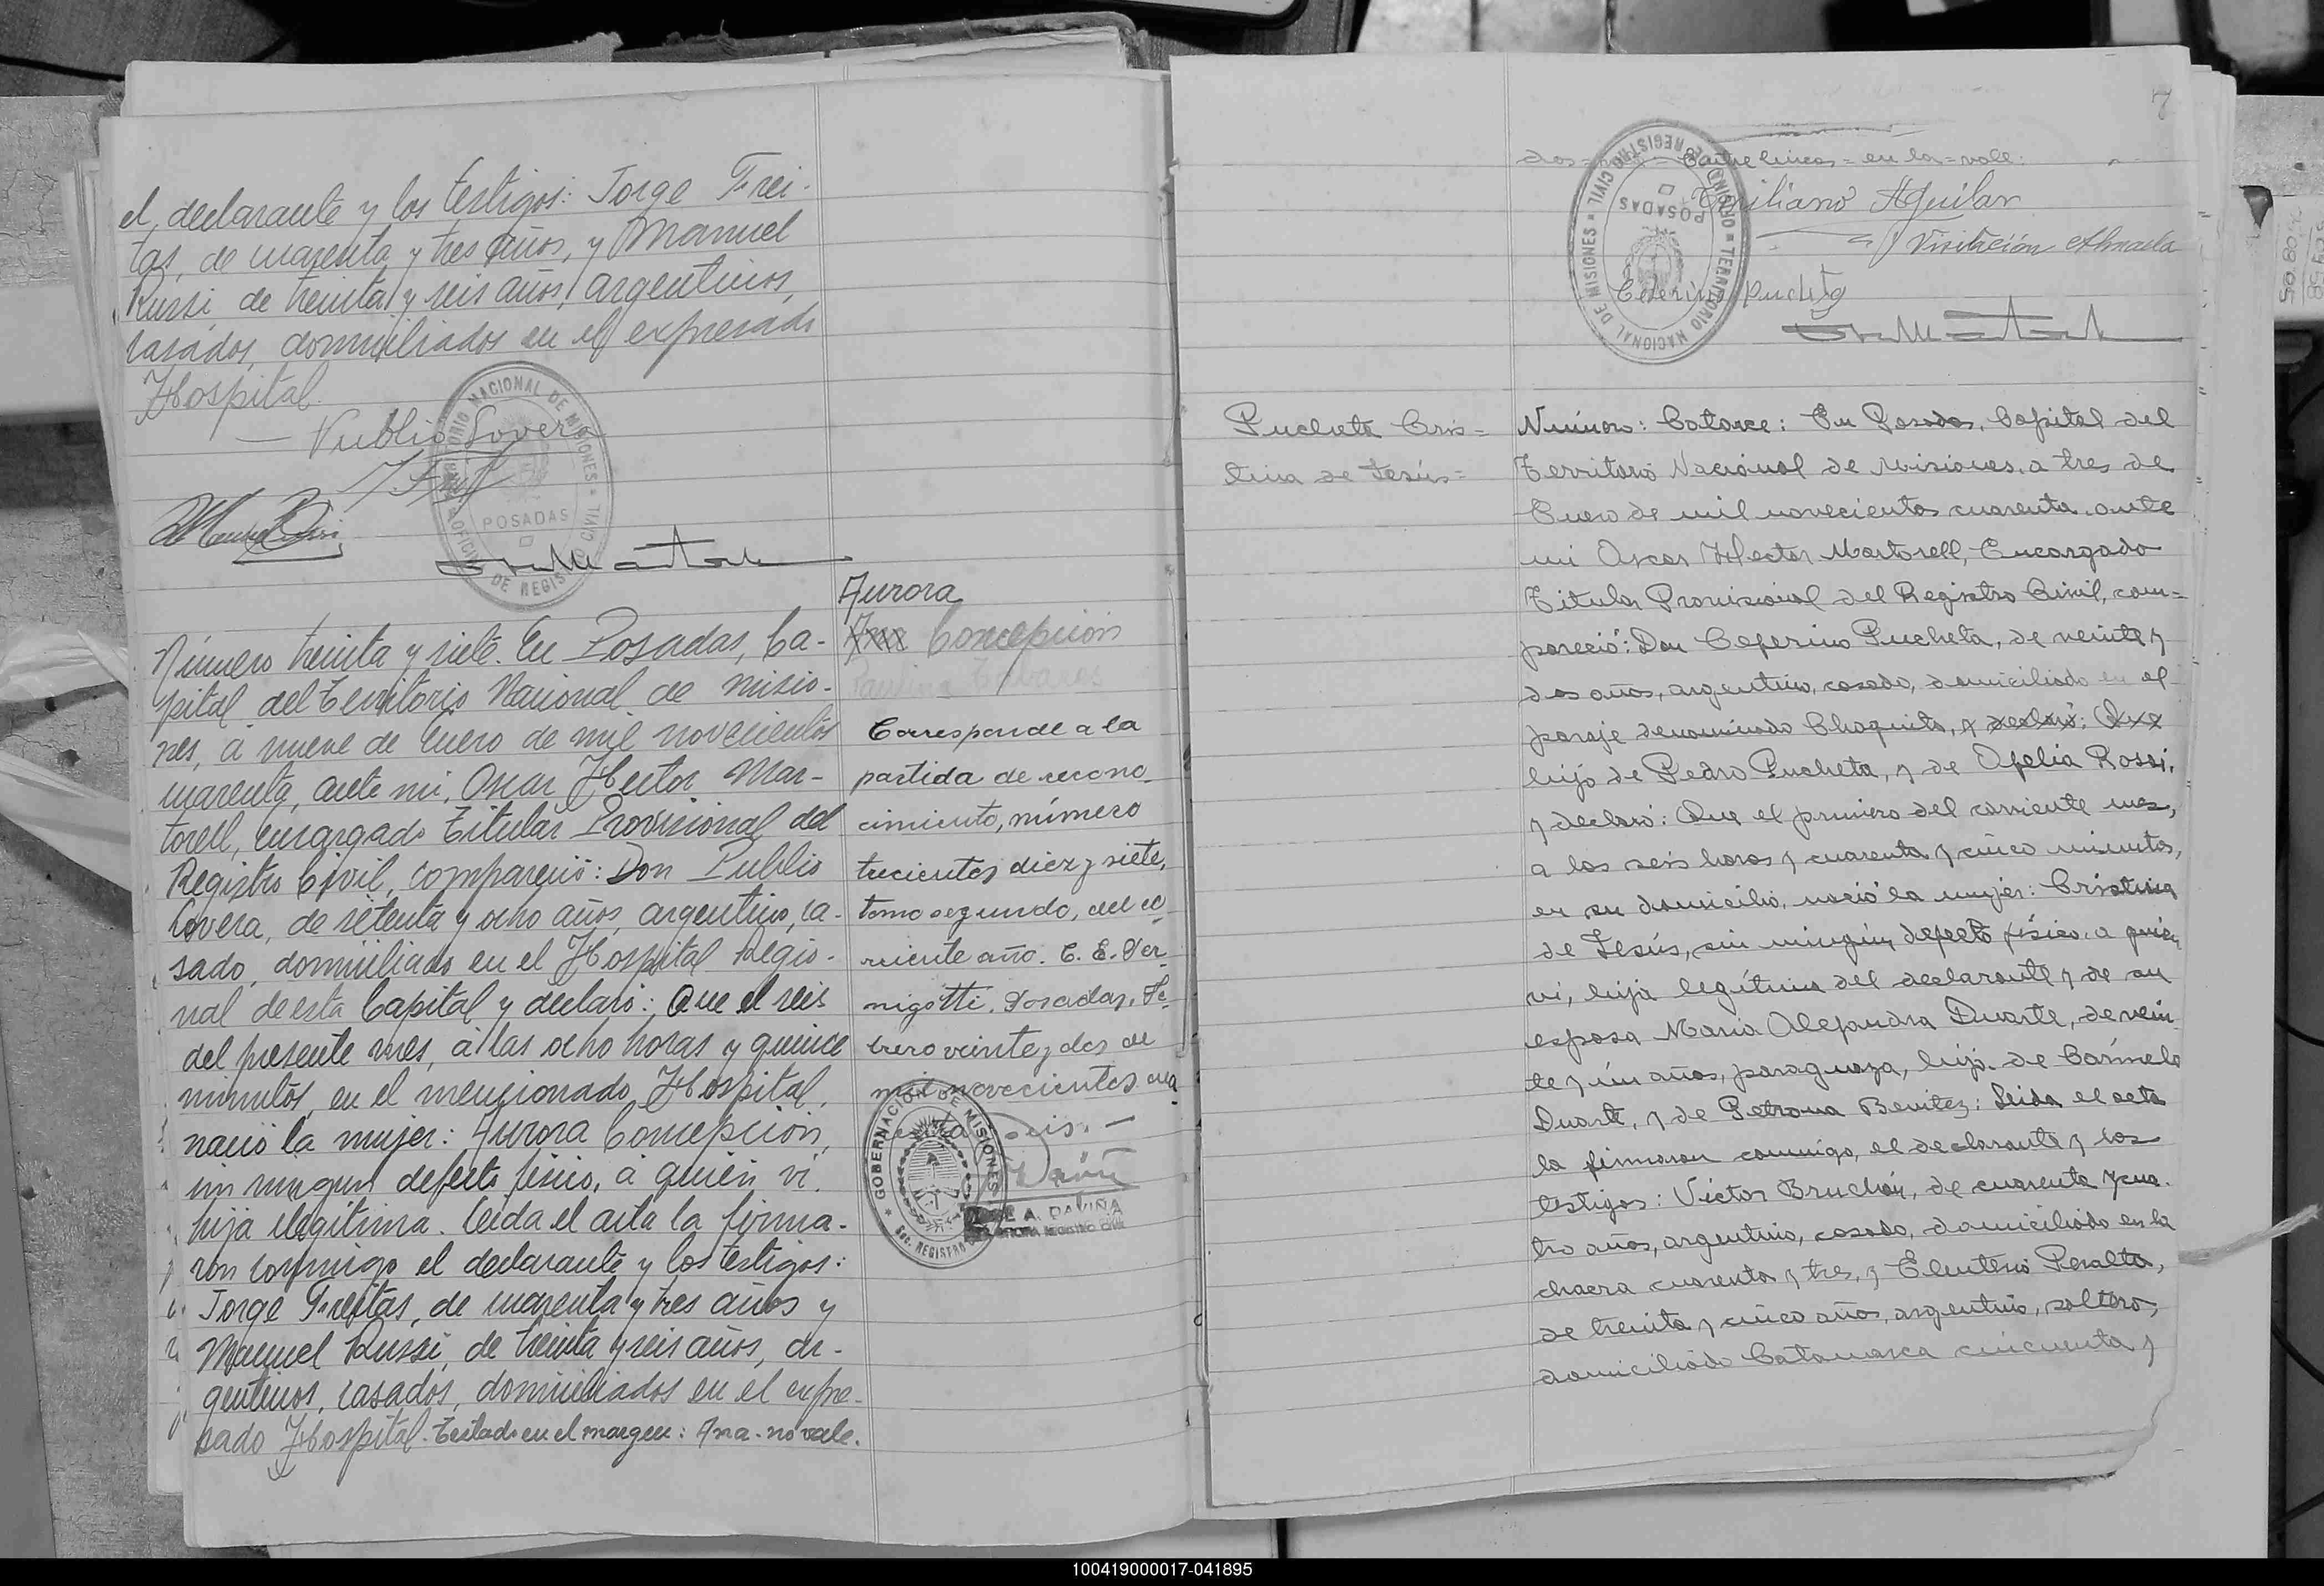 el declarante y los testigos: Jorge Frei-
tas, de cuarenta y tres años, y Manuel
Russi, de treinta y seis años, argentinos,
casados, domiciliados en el expresado
Hospital.
Publio Lovera
TERRITORIO NACIONAL DE MISIONES
POSADAS
OFICINA DE REGISTRO CIVIL
Aurora
Ana Concepción
Número treinta y siete. En Posadas, Ca-
pital del Territorio Nacional de Misio-
nes, a nueve de Enero de mil novecientos
cuarenta, ante mi, Oscar Hector Mar-
torell, Encargado Titular Provisional del
Registro Civil, compareció: Don Publio
Lovera, de setenta y ocho años, argentino, ca-
sado, domiciliado en el Hospital Regio-
nal de esta Capital y declaró: Que el seis
del presente mes, a las ocho horas y quince
minutos, en el mencionado Hospital,
nació la mujer: Aurora Concepción,
sin ningun defecto físico, a quién vi,
hija ilegítima. Leida el acta la firma-
ron conmigo el declarante y los testigos:
Jorge Freitas, de cuarenta y tres años y
Manuel Russi, de treinta y seis años, ar-
gentinos, casados, domiciliados en el expre-
sado Hospital. Testado en el margen: Ana - no vale.
Corresponde a la
partida de recono-
cimiento, número
trecientos diez y siete,
tomo segundo, del co
rriente año. C. E. Ver-
nigotti. Posadas, Fe-
brero veinte y dos de
mil novecientos cua
renta y seis. -
GOBERNACION DE MISIONES
SEC. REGISTRO
7
Entre lineas = en la = vale.
Emiliano Aguilar
Visitación
Ceferino Pucheta
TERRITORIO NACIONAL DE MISIONES
REGISTRO CIVIL
POSADAS
Pucheta Cris=
tina de Jesús=
Número: Catorce: En Posadas, Capital del
Territorio Nacional de Misiones, a tres de
Enero de mil novecientos cuarenta, ante
mi Oscar Hector Martorell, Encargado
Titular Provisional del Registro Civil, com=
pareció: Don Ceferino Pucheta, de veinte y
dos años, argentino, casado, domiciliado en el
paraje denominado Chaquito, y declaró: Que
hijo de Pedro Pucheta, y de Ofelia Rossi,
y declaró: Que el primero del corriente mes,
a las seis horas y cuarenta y cinco minutos,
en su domicilio, nació la mujer: Cristina
de Jesús, sin ningún defecto físico, a quien
vi, hija legítima del declarante y de su
esposa Maria Alejandra Duarte, de vein-
te y un años, paraguaya, hija de Carmelo
Duarte, y de Petrona Benitez: Leida el acta
la firmaron conmigo, el declarante y los
testigos: Victor Bruchón, de cuarenta y cua-
tro años, argentino, casado, domiciliado en la
chacra cuarenta y tres, y Eleuterio Peralta,
de treinta y cinco años, argentino, soltero,
domiciliado Catamarca cincuenta y
100419000017-041895